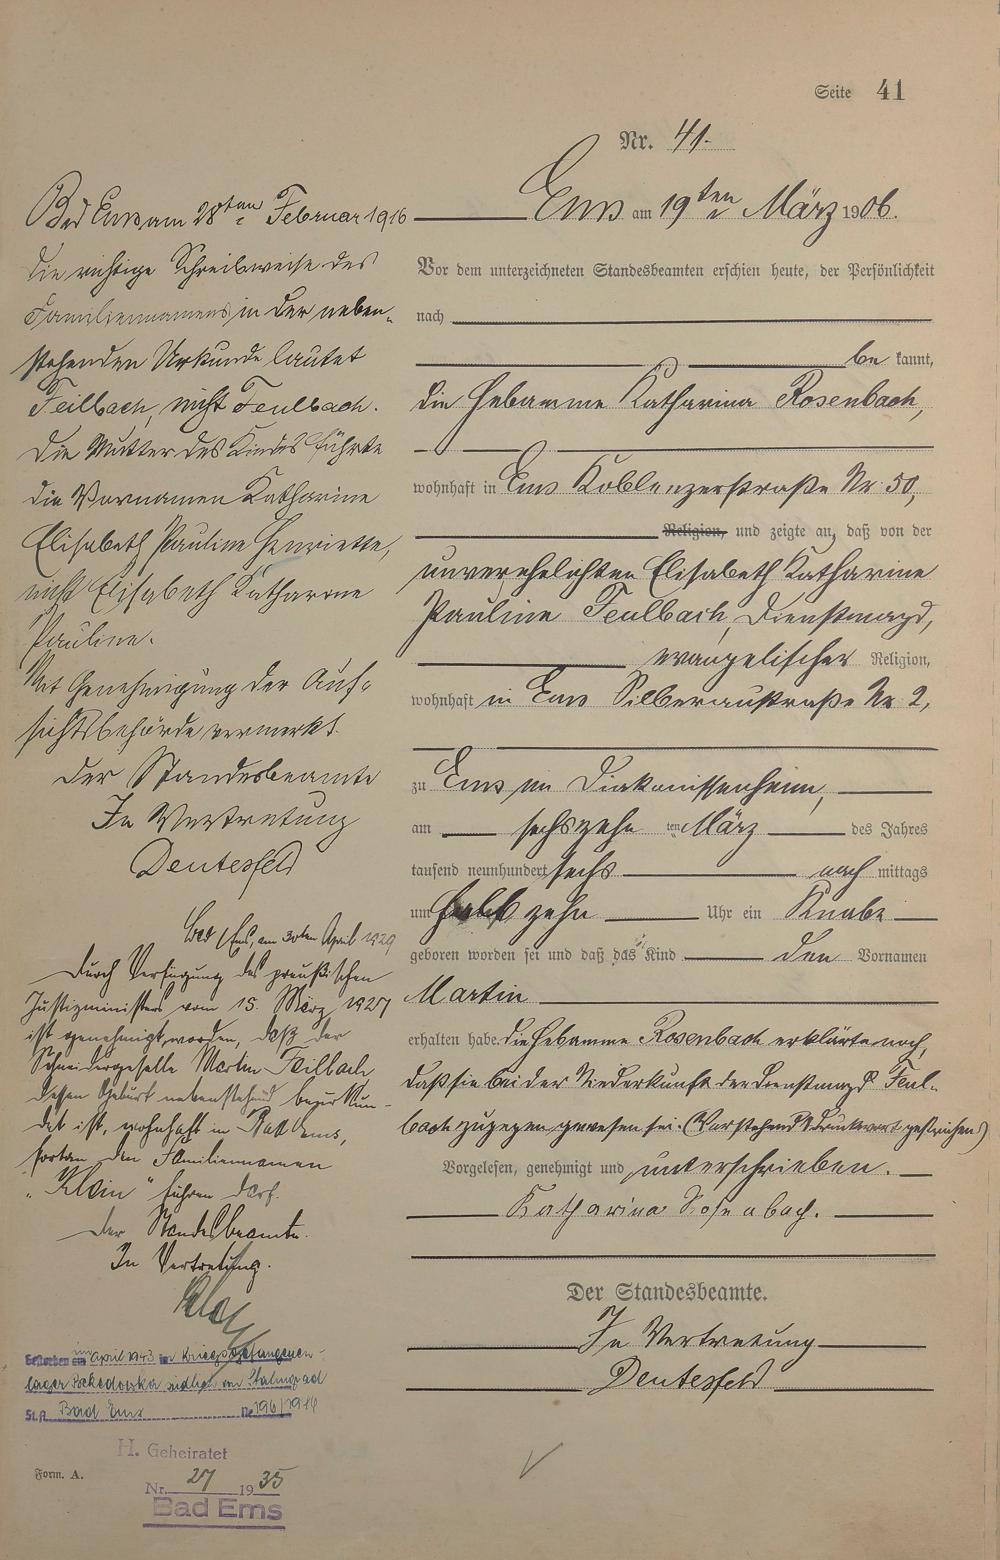 Seite 41
Nr. 41.
Ems am 19ten März 1906.
Vor dem unterzeichneten Standesbeamten erschien heute, der Persönlichkeit
nach
be kannt,
die Hebamme Katharina Rosenbach,
wohnhaft in Ems Koblenzerstraße Nr. 50,
Religion, und zeigte an, daß von der
unverehelichten Elisabeth Katharine
Pauline Feulbach, Dienstmagd,
evangelischer Religion,
wohnhaft in Ems Silberaustraße Nr 2,
zu Ems im Diakonissenheim,
am sechszehn ten März des Jahres
tausend neunhundert sechs nach mittags
um halb zehn Uhr ein Knabe
geboren worden sei und daß das Kind den Vornamen
Martin
erhalten habe. die Hebamme Rosenbach erklärte noch,
daß sie bei der Niederkunft der Dienstmagd Feul-
bach zugegen gewesen sei. (Vorstehend Druckwort gestrichen!)
Vorgelesen, genehmigt und unterschrieben.
Katharina Rosenbach.
Der Standesbeamte.
In Vertretung
Deutesfeld
Bad Ems am 28ten Februar 1916
Die richtige Schreibweise des
Familiennamens in der neben-
stehenden Urkunde lautet
Feilbach, nicht Feulbach.
Die Mutter des Kindes führte
die Vornamen Katharine
Elisabeth Pauline Henriette,
nicht Elisabeth Katharine
Pauline.
Mit Genehmigung der Auf-
sichtsbehörde vermerkt.
Der Standesbeamte
In Vertretung
Deutesfeld
Bad Ems, am 30ten April 1929
Durch Verfügung des preußischen
Justizministers vom 15. März 1927
ist genehmigt worden, daß der
Schneidergeselle Martin Feilbach
dessen Geburt nebenstehend beurkun-
det ist, wohnhaft in Bad Ems,
fortan den Familiennamen
"Klein" führen darf.
Der Standesbeamte.
In Vertretung.
Gestorben am im April 1943 in Kriegsgefangenen-
lager Beketowka südlich von Stalingrad
St.A. Bad Ems Nr 196/1914
H. Geheiratet
Form. A.
Nr. 27 1935
Bad Ems